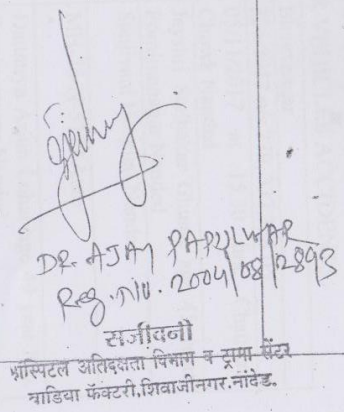 DR. AJAY PAPULWAR
Reg. No. 2004/08/2893
सजीवनी
हॉस्पिटल अतिदक्षता विभाग व ट्रामा सेंटर
वाडिया फॅक्टरी,शिवाजीनगर.नांदेड.